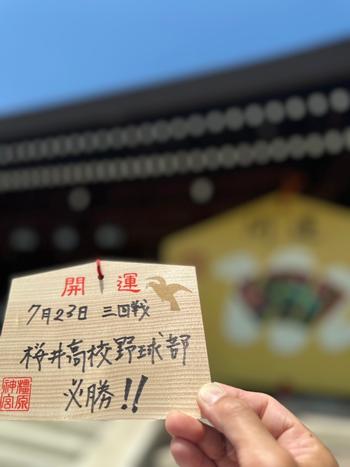 開運
7月23日 三回戦
桜井高校野球部
必勝!!
橿原
神宮